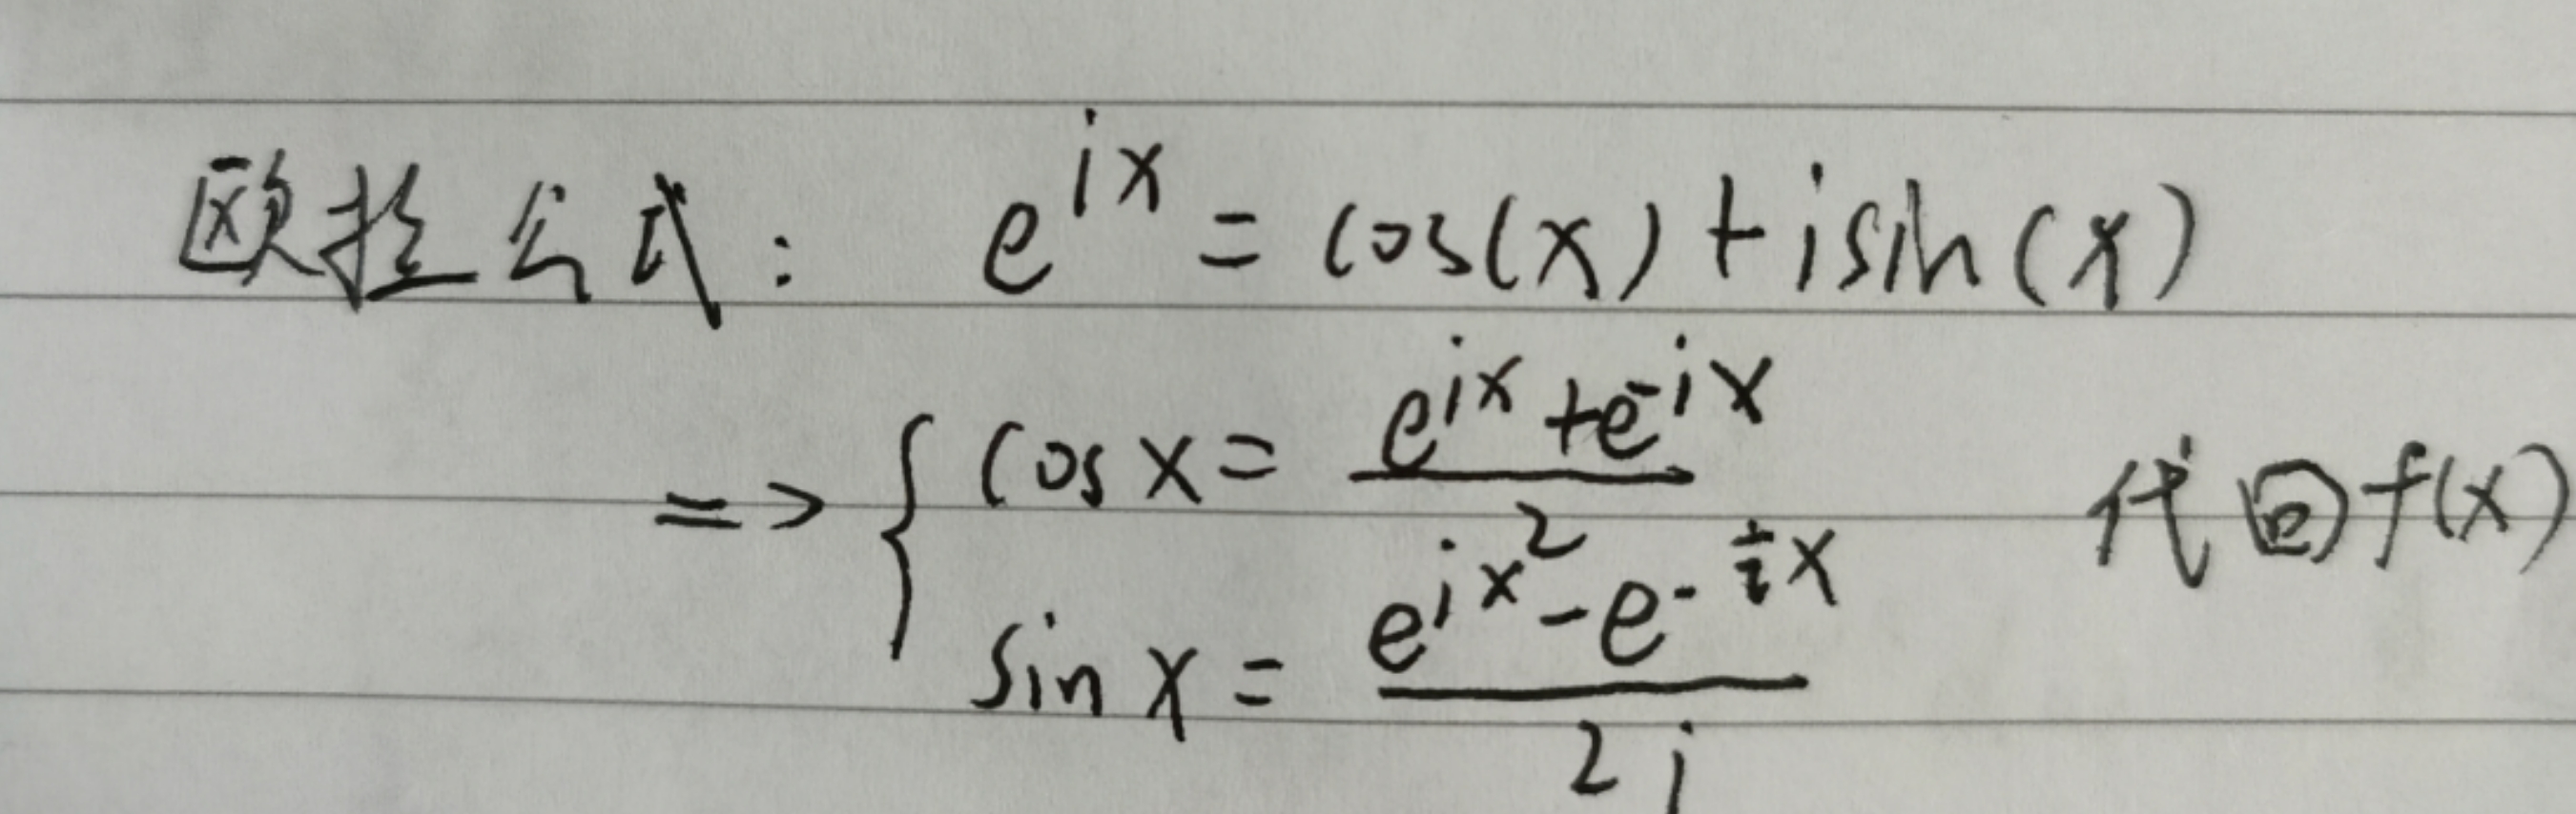 欧拉公式: e^{ix} = cos(x) + i sin(x)
=> { cos x = \frac{e^{ix} + e^{-ix}}{2} 代回 f(x)
sin x = \frac{e^{ix} - e^{-ix}}{2i}